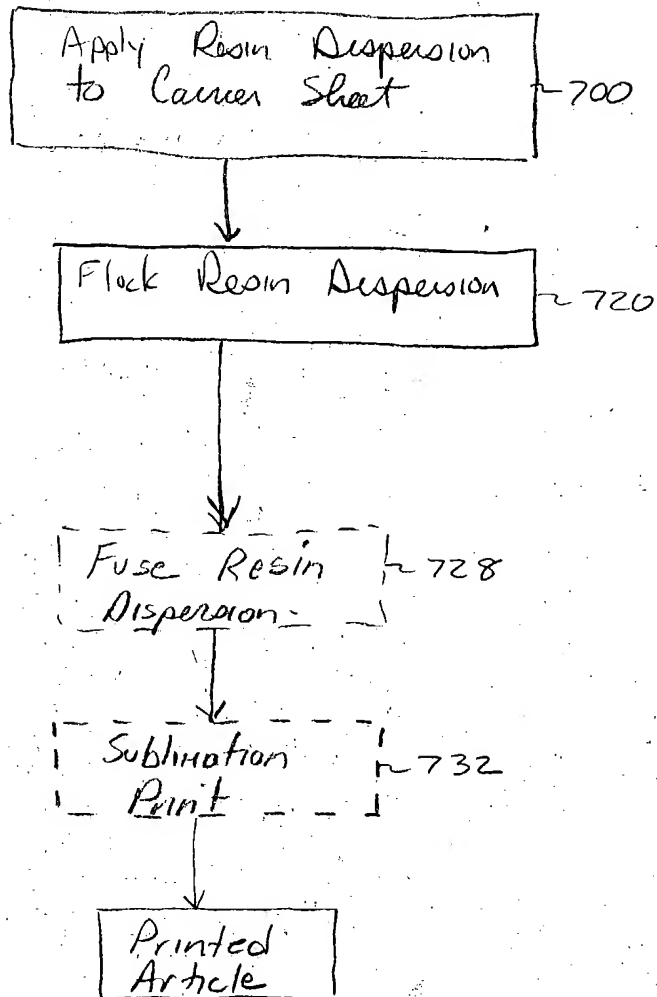 Apply Resin Dispersion
to Carrier Sheet
700
Flock Resin Dispersion
720
Fuse Resin
Dispersion
728
Sublimation
Print
732
Printed
Article